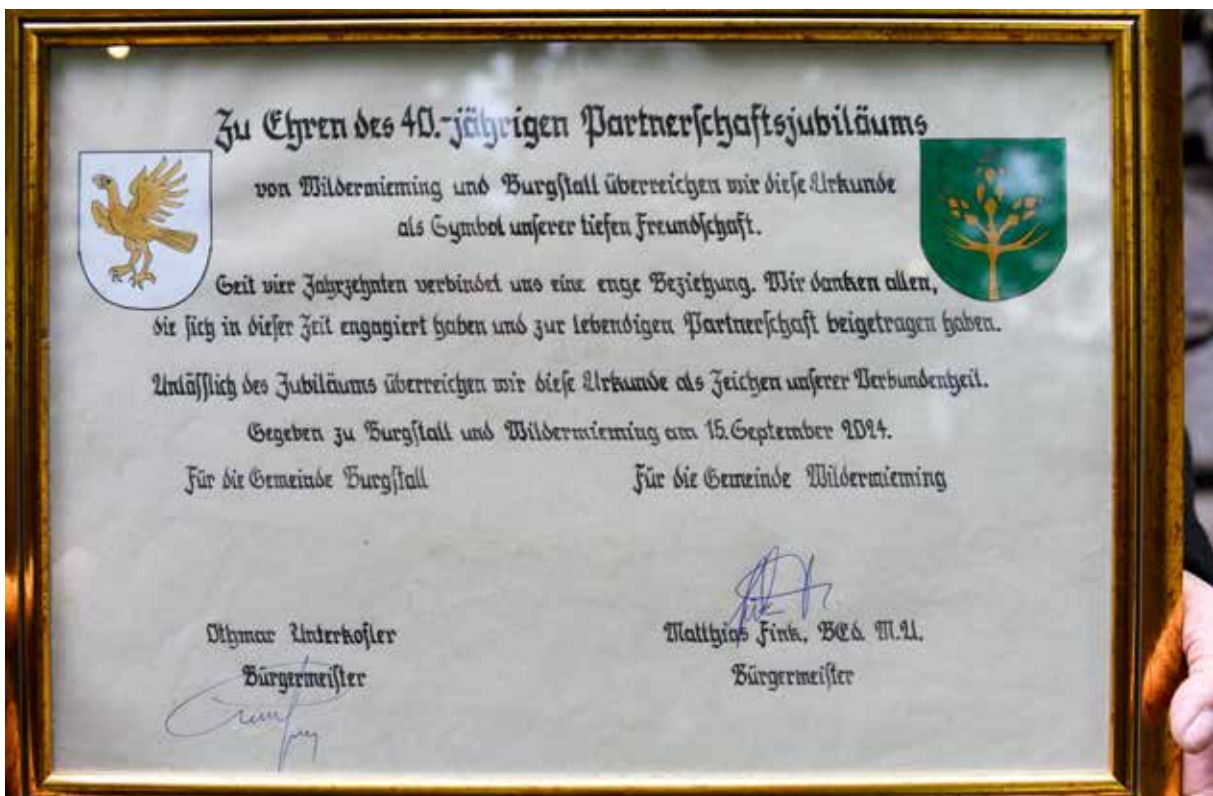 Zu Ehren des 40.-jährigen Partnerschaftsjubiläums
von Wildermieming und Burgstall überreichen wir diese Urkunde
als Symbol unserer tiefen Freundschaft.
Seit vier Jahrzehnten verbindet uns eine enge Beziehung. Wir danken allen,
die sich in dieser Zeit engagiert haben und zur lebendigen Partnerschaft beigetragen haben.
Anlässlich des Jubiläums überreichen wir diese Urkunde als Zeichen unserer Verbundenheit.
Gegeben zu Burgstall und Wildermieming am 15. September 2024.
Für die Gemeinde Burgstall
Für die Gemeinde Wildermieming
Othmar Unterkofler
Bürgermeister
Matthias Fink, BEd. M.A.
Bürgermeister